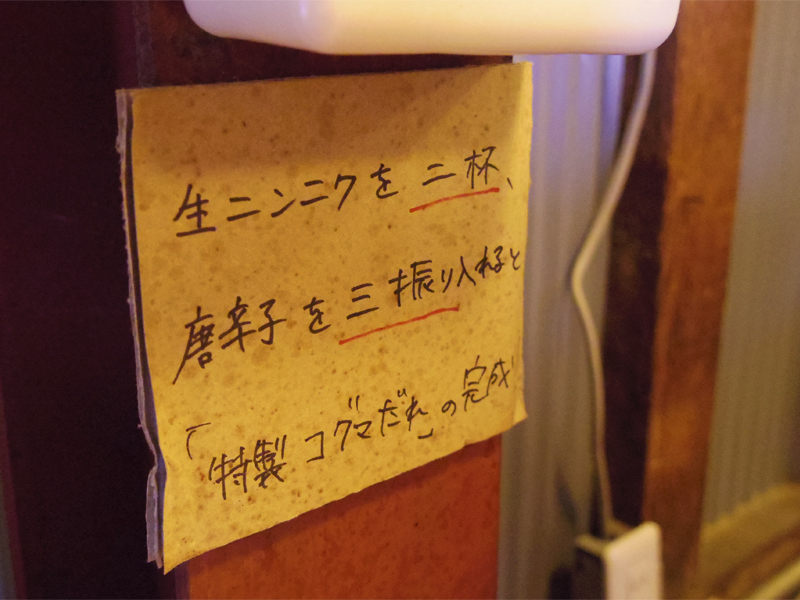 生ニンニクを二杯、
唐辛子を三振り入れると
「特製コグマだれ」の完成